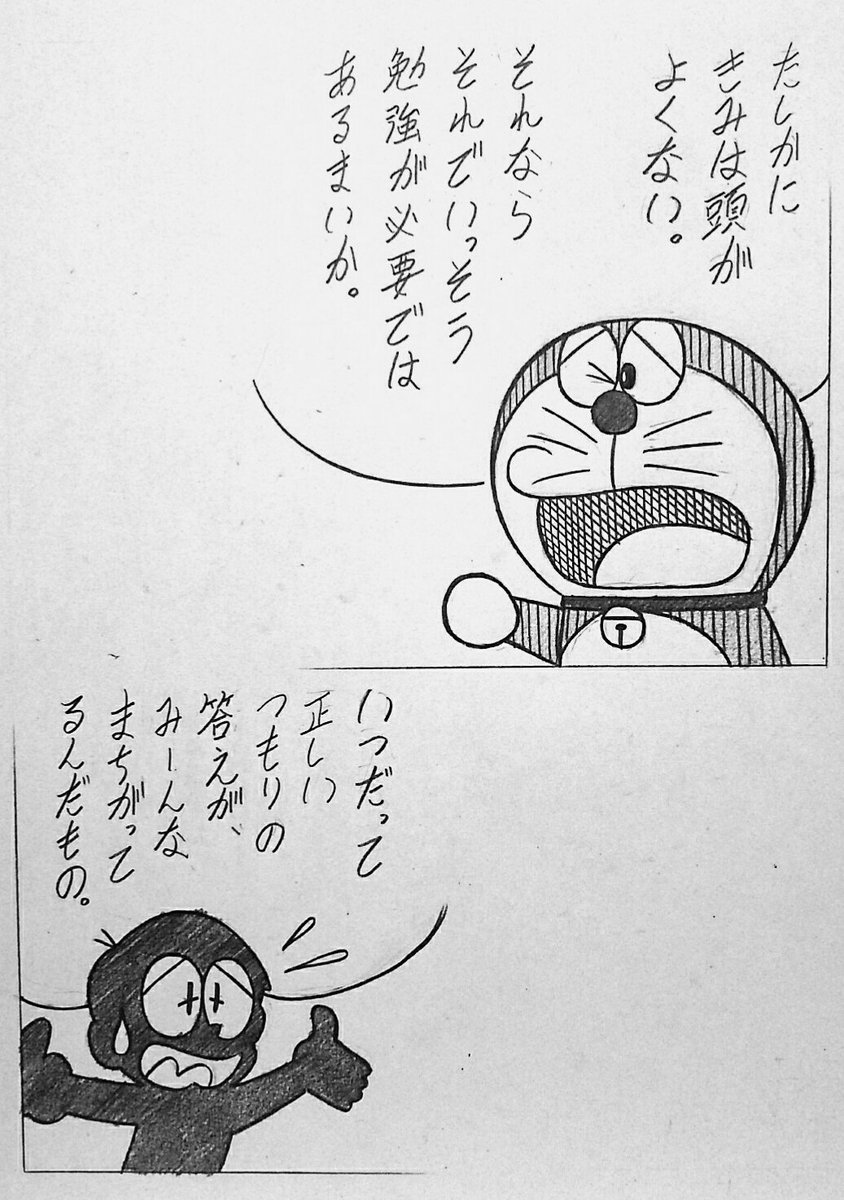 たしかに
きみは頭が
よくない。
それなら
それでいっそう
勉強が必要では
あるまいか。
いつだって
正しい
つもりの
答えが、
みーんな
まちがって
るんだもの。